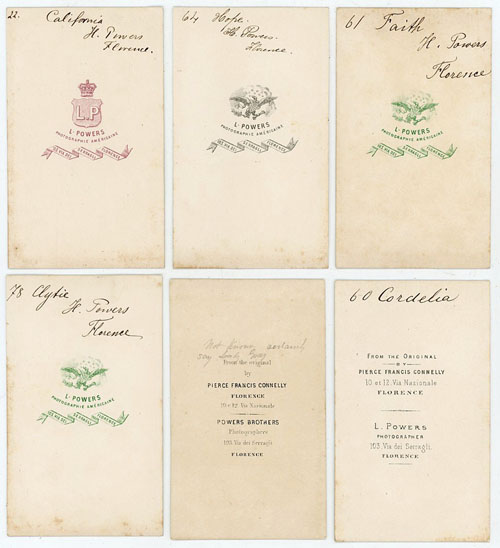 22. California
H. Powers
Florence.
L.P
L. POWERS
PHOTOGRAPHIE AMÉRICAINE
FLORENCE
64 Hope.
H. Powers.
Florence.
L. POWERS
PHOTOGRAPHIE AMÉRICAINE
FLORENCE
61 Faith
H. Powers
Florence
L. POWERS
PHOTOGRAPHIE AMÉRICAINE
FLORENCE
78 Clytie
H. Powers
Florence
L. POWERS
PHOTOGRAPHIE AMÉRICAINE
FLORENCE
Not
say
From the original
by
PIERCE FRANCIS CONNELLY
FLORENCE
10 et 12. Via Nazionale
POWERS BROTHERS
Photographers
103. Via dei Serragli
FLORENCE
60 Cordelia
FROM THE ORIGINAL
BY
PIERCE FRANCIS CONNELLY
10 et 12. Via Nazionale
FLORENCE
L. POWERS
PHOTOGRAPHER
103. Via dei Serragli.
FLORENCE